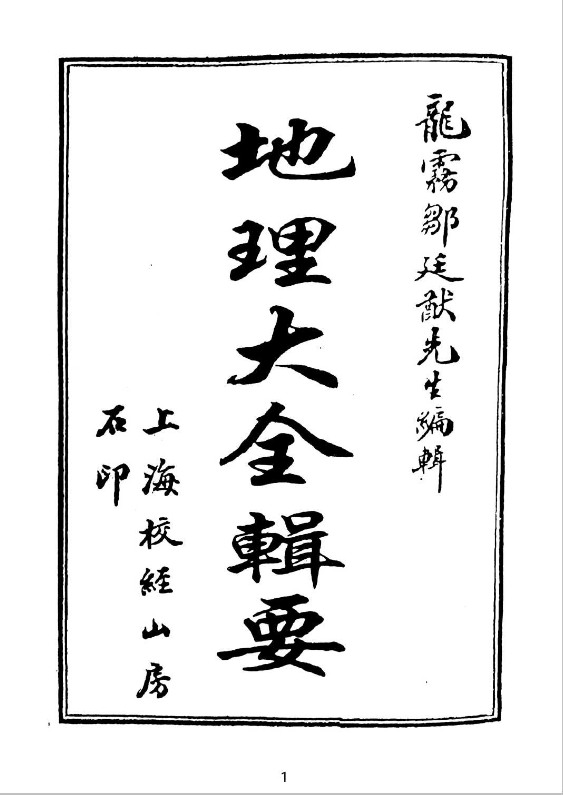 龍霧鄒廷猷先生編輯
地理大全輯要
上海校經山房
石印
1